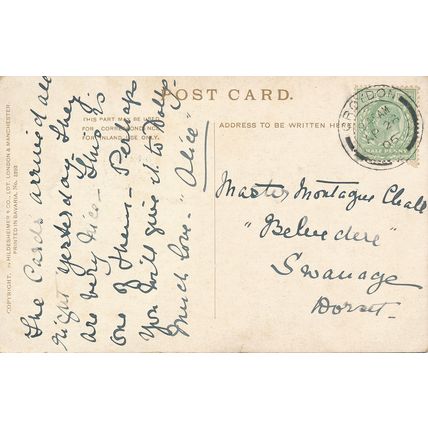 POST CARD.
THIS PART MAY BE USED
FOR CORRESPONDENCE
FOR INLAND USE ONLY.
ADDRESS TO BE WRITTEN HERE
The Cards arrived all
right yesterday. They
are very nice - This is
one of them - Perhaps
you will give it to Dolly.
Much love - "Alice"
Master Montague Chall
"Belvedere"
Swanage
Dorset.
CROYDON
AM
06
HALFPENNY
COPYRIGHT, HILDESHEIMER & CO., LTD. LONDON & MANCHESTER.
PRINTED IN BAVARIA.